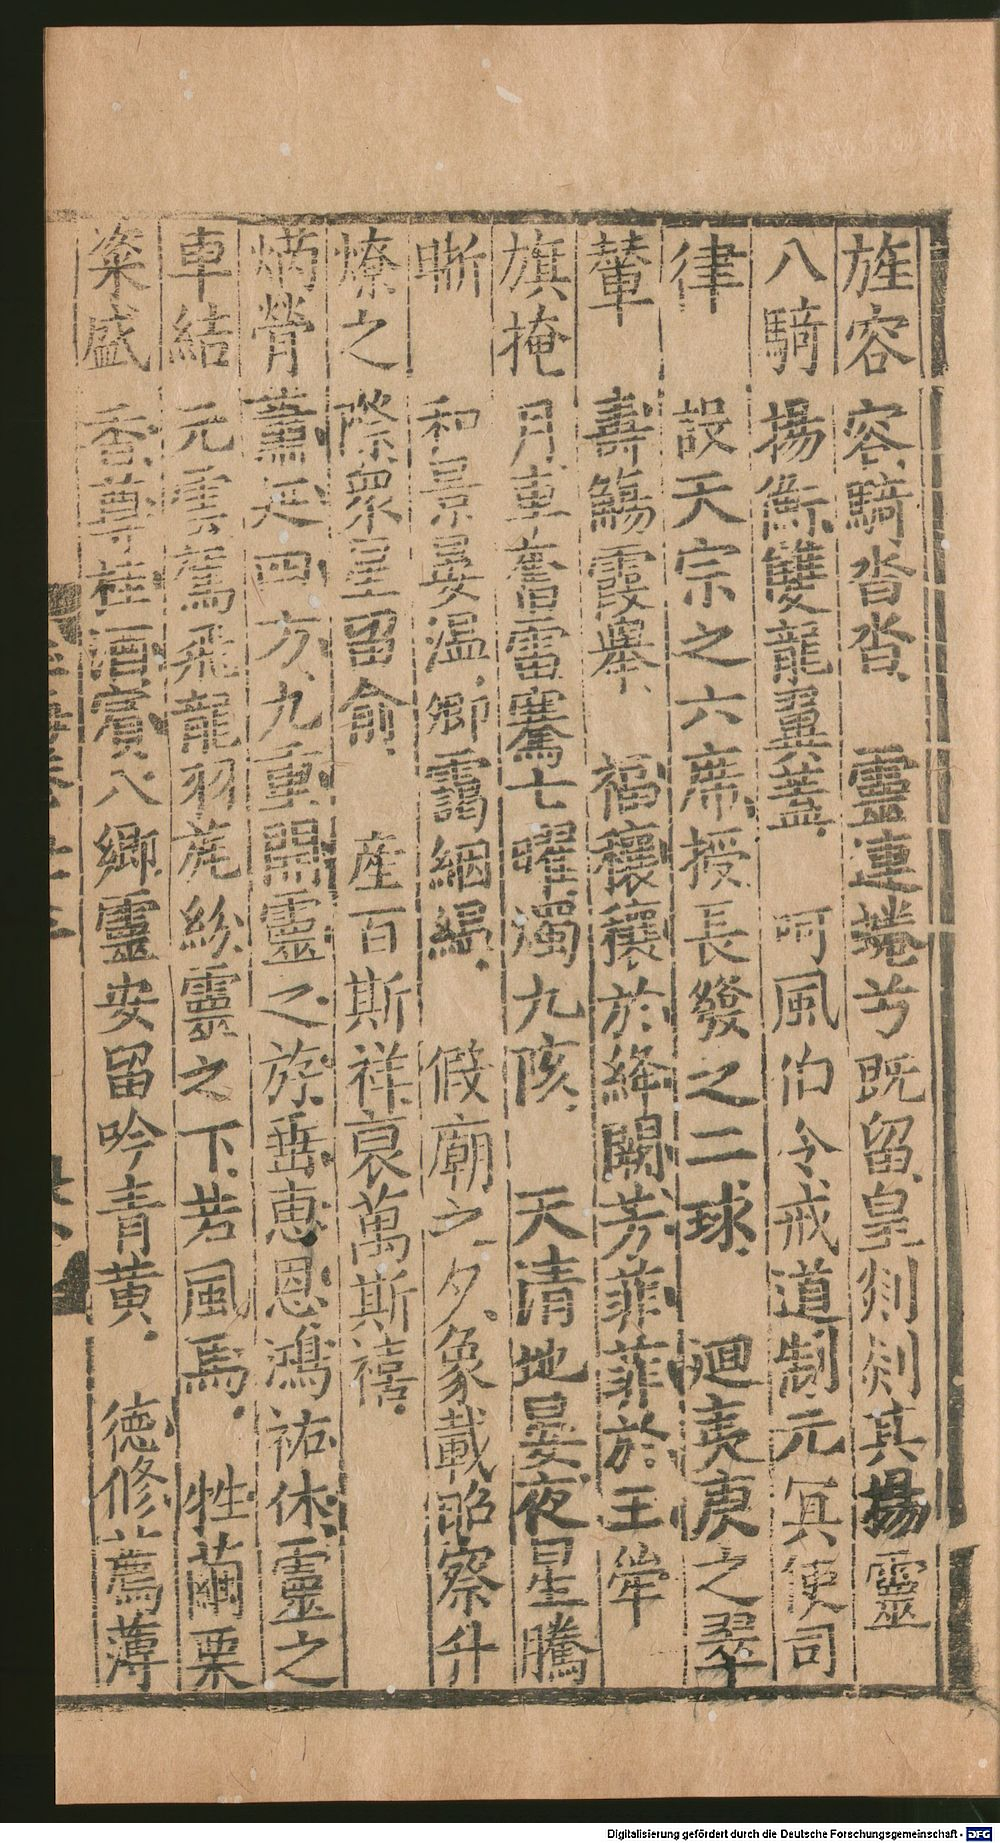 旌容容騎沓沓靈連蜷兮既留皇剡剡其揚靈
八騎揚衡雙龍翼蓋呵風伯令戒道制元冥使司
律設天宗之六席授長發之二球廻夷庚之翠
輦壽觴霞舉福穰穰於絳闕芳菲菲於王
旗掩月車奮雷騫七曜濁九陔天清地晏夜星騰
晰和景晏溫卿靄絪縕假廟之夕象載昭察升
燎之際衆星留俞產百斯祥裒萬斯禧
焫膋蕭延四方九重開靈之斿垂惠恩鴻祐休靈之
車結元雲駕飛龍羽旄紛靈之下若風馬牲繭栗
粢盛香尊桂酒賓八鄉靈安留吟青黃德修薦薄
Digitalisierung gefördert durch die Deutsche Forschungsgemeinschaft - DFG